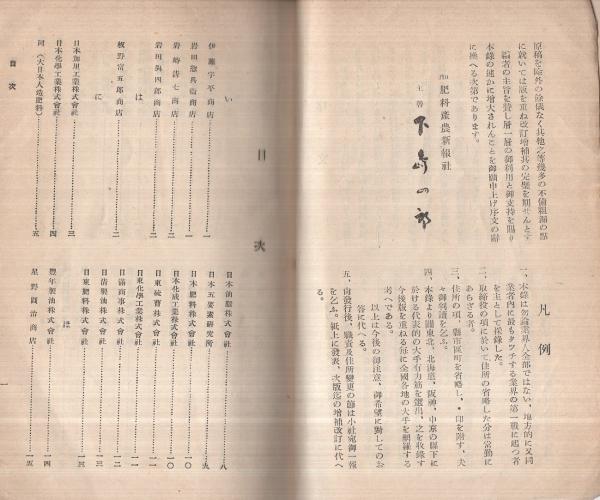 原稿を除外の餘儀なく其他之等幾多の不備粗漏の點
に就いては版を重ね改訂增補其の完璧を期せんとす
編者の主旨を賛し層一層の御利用と御支持を賜り
本錄の速かに增大されんことを御願申上げ序文の辭
に換へる次第であります。
肥料產農新報社
主幹
凡例
一、本錄は勿論業界人全部ではない、地方的に又同
業者內に最もタツチする業界の第一戰に起つ者
を主として採錄した。
二、取締役の項に於いて住所の省略した分は常勤に
あらざる者。
三、住所の項、縣市區町を省略し、・印を附す、夫
々御判讀を乞ふ。
四、本錄より關東北、北海道、阪神、中京の縣下に
於ける代表的の大手有力筋を選出、之を收錄す
今後版を重ねる每に全國各地の大手を網羅する
考へである。
以上は今後の御注意、御希望に對してのお
答に代へる。
五、尙發行後、職責及住所變更の節は小社宛御一報
を乞ふ。紙上に發表、次版迄の增補改訂に代へ
る。
目次
い
伊藤宇平商店……一
岩田惣兵衞商店……一
岩崎淸七商店……二
岩田與四郎商店……二
は
板野富五郎商店……二
に
日本加里工業株式會社……三
日本化學工業株式會社……四
同（大日本人造肥料）……五
日本油脂株式會社……八
日本五要素硏究所……九
日本肥料株式會社……一〇
日本化成工業株式會社……一〇
日東硫曹株式會社……一一
日東化學工業株式會社……一一
日滿商事株式會社……一二
日淸製油株式會社……一三
日東肥料株式會社……一三
ほ
豐年製油株式會社……一四
星野圓治商店……一五
目次